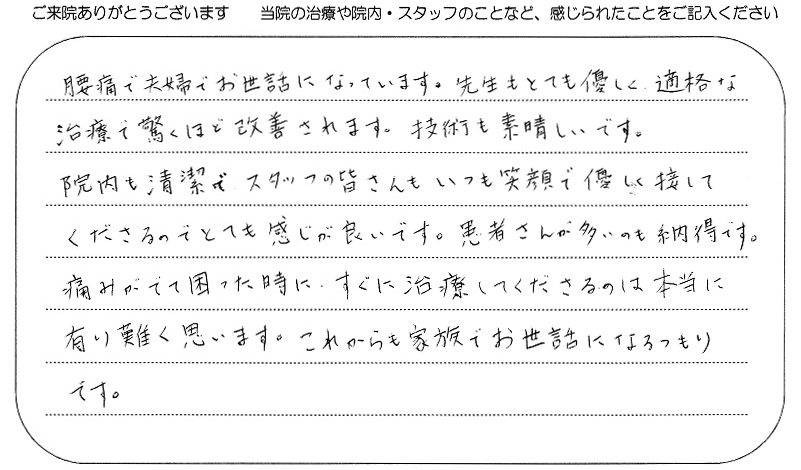 ご来院ありがとうございます　当院の治療や院内・スタッフのことなど、感じられたことをご記入ください
腰痛で夫婦でお世話になっています。先生もとても優しく適格な
治療で驚くほど改善されます。技術も素晴しいです。
院内も清潔で、スタッフの皆さんもいつも笑顔で優しく接して
くださるのでとても感じが良いです。患者さんが多いのも納得です。
痛みがでて困った時に、すぐに治療してくださるのは本当に
有り難く思います。これからも家族でお世話になるつもり
です。